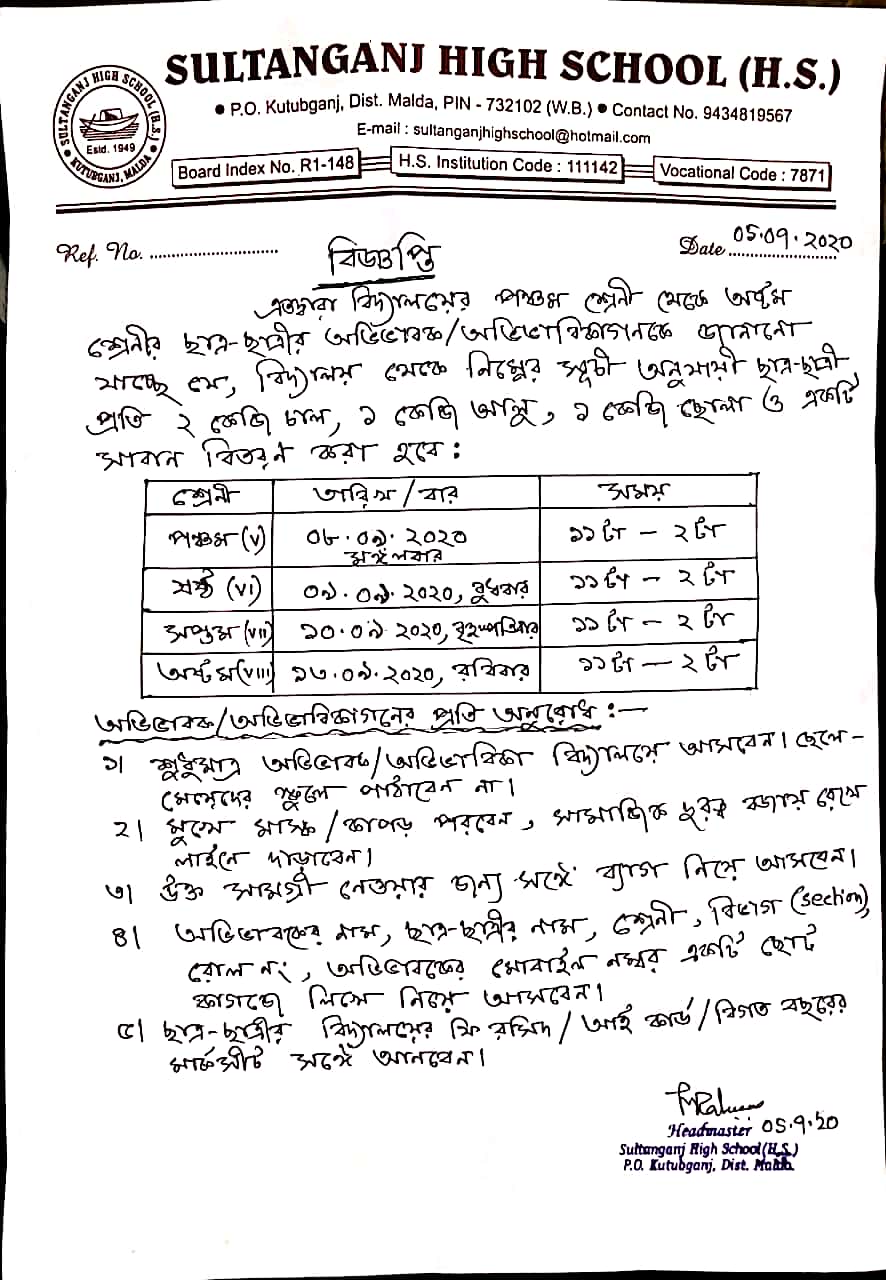 SULTANGANJ HIGH SCHOOL (H.S.)
● P.O. Kutubganj, Dist. Malda, PIN - 732102 (W.B.) ● Contact No. 9434819567
E-mail : sultanganjhighschool@hotmail.com
SULTANGANJ HIGH SCHOOL (H.S.)
Estd. 1949
KUTUBGANJ, MALDA
Board Index No. R1-148 H.S. Institution Code : 111142 Vocational Code : 7871
Ref. No. .............................. Date 05.09.2020
বিজ্ঞপ্তি
এতদ্বারা বিদ্যালয়ের পঞ্চম শ্রেনী থেকে অষ্টম
শ্রেনীর ছাত্র-ছাত্রীর অভিভাবক/অভিভাবিকাগনকে জানানো
যাচ্ছে যে, বিদ্যালয় থেকে নিম্নের সূচী অনুযায়ী ছাত্র-ছাত্রী
প্রতি ২ কেজি চাল, ১ কেজি আলু, ১ কেজি ছোলা ও একটি
সাবান বিতরণ করা হবে :
শ্রেনী তারিখ/বার সময়
পঞ্চম (V) ০৮.০৯.২০২০ ১১টা - ২টা
মঙ্গলবার
ষষ্ঠ (VI) ০৯.০৯.২০২০, বুধবার ১১টা - ২টা
সপ্তম (VII) ১০.০৯.২০২০, বৃহস্পতিবার ১১টা - ২টা
অষ্টম (VIII) ১৩.০৯.২০২০, রবিবার ১১টা - ২টা
অভিভাবক/অভিভাবিকাগনের প্রতি অনুরোধ :-
১। শুধুমাত্র অভিভাবক/অভিভাবিকা বিদ্যালয়ে আসবেন। ছেলে-
মেয়েদের স্কুলে পাঠাবেন না।
২। মুখে মাস্ক/কাপড় পরবেন, সামাজিক দূরত্ব বজায় রেখে
লাইনে দাড়াবেন।
৩। উক্ত সামগ্রী নেওয়ার জন্য সঙ্গে ব্যাগ নিয়ে আসবেন।
৪। অভিভাবকের নাম, ছাত্র-ছাত্রীর নাম, শ্রেনী, বিভাগ (section),
রোল নং, অভিভাবকের মোবাইল নম্বর একটি ছোট
কাগজে লিখে নিয়ে আসবেন।
৫। ছাত্র-ছাত্রীর বিদ্যালয়ের ফি রসিদ/আই কার্ড/বিগত বছরের
মার্কসীট সঙ্গে আনবেন।
Headmaster 05.9.20
Sultanganj High School (H.S.)
P.O. Kutubganj, Dist. Malda